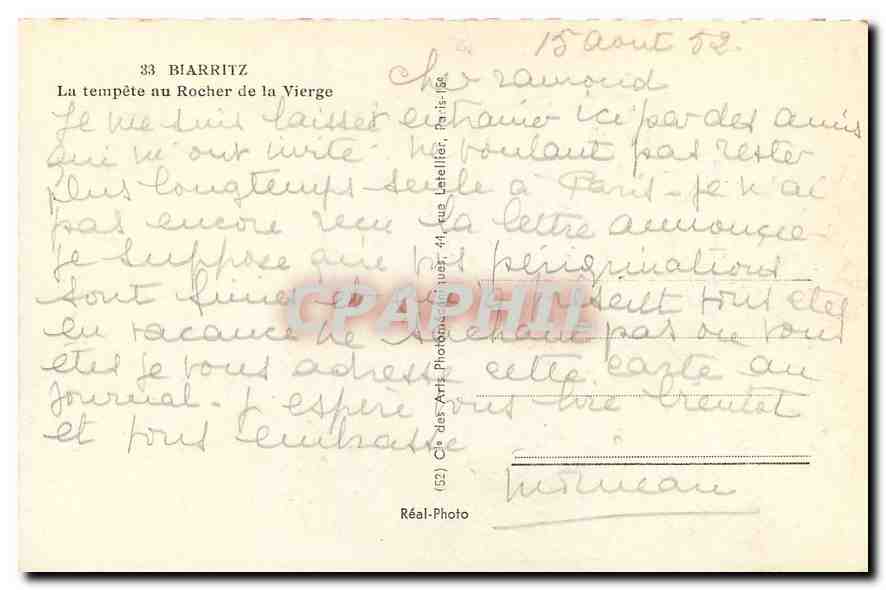 33 BIARRITZ
La tempête au Rocher de la Vierge
15 Aout 52.
Cher ramond
Je me suis laisser entrainer ici par des amis
qui m'ont invité ne voulant pas rester
plus longtemps seule à Paris - je n'ai
pas encore recu la lettre annoncée
je suppose que vos pérégrinations
sont finies et que à présent vous etes
en vacance ne sachant pas ou vous
êtes je vous adresse cette carte au
journal - j'espère vous lire bientot
et vous embrasse
(52) Cie des Arts Photomécaniques, 44, rue Letellier, Paris-15e
Réal-Photo
CPAPHIL